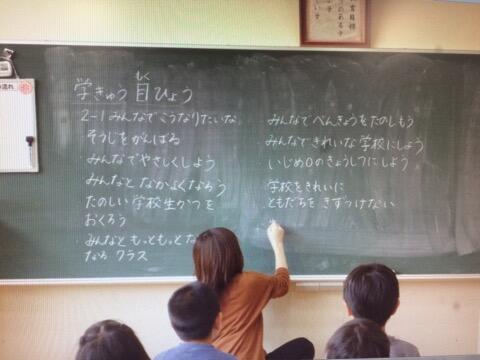 学きゅう目ひょう
もく
2-1 みんなでこうなりたいな
そうじをがんばる
・みんなでやさしくしよう
みんなと なかよくなろう
たのしい学校生かつを
おくろう
・みんなと もっともっとな
なる クラス
みんなでべんきょうをたのしもう
・みんなできれいな学校にしよう
・いじめ0のきょうしつにしよう
学校をきれいに
ともだちを きずつけない